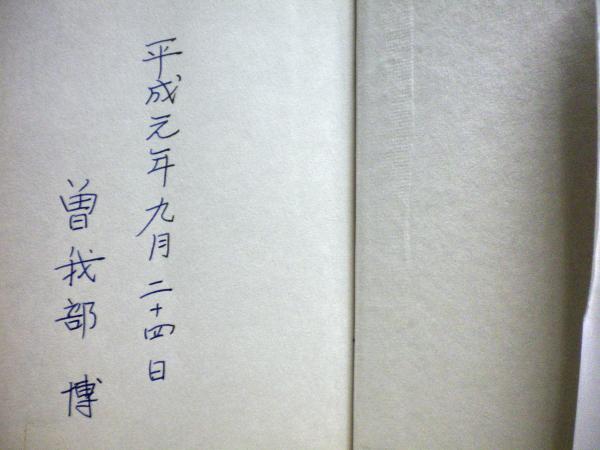 平成元年九月二十四日
曽我部 博